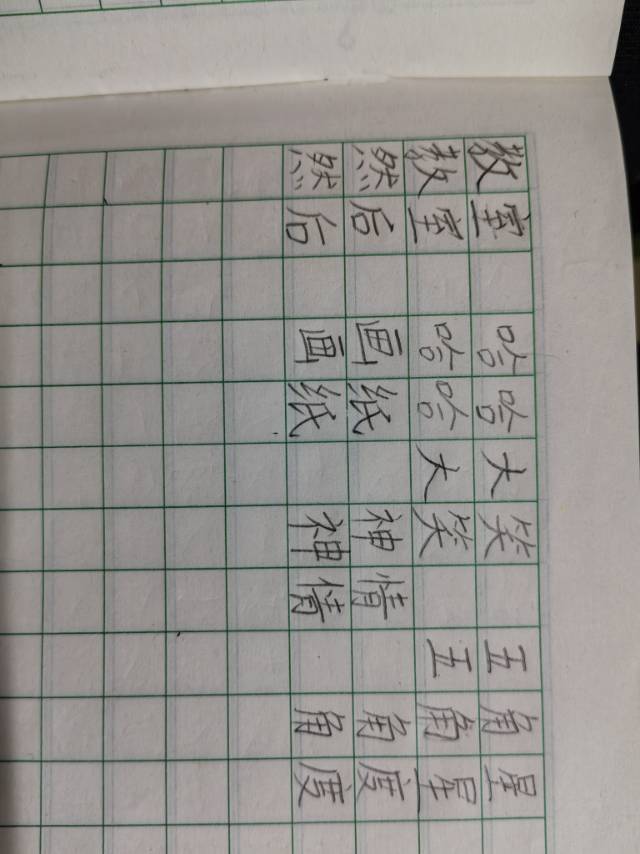 教室 哈哈大笑 五角星
教室 哈哈大笑 五角星
然后 画纸 神情 角度
然后 画纸 神情 角度